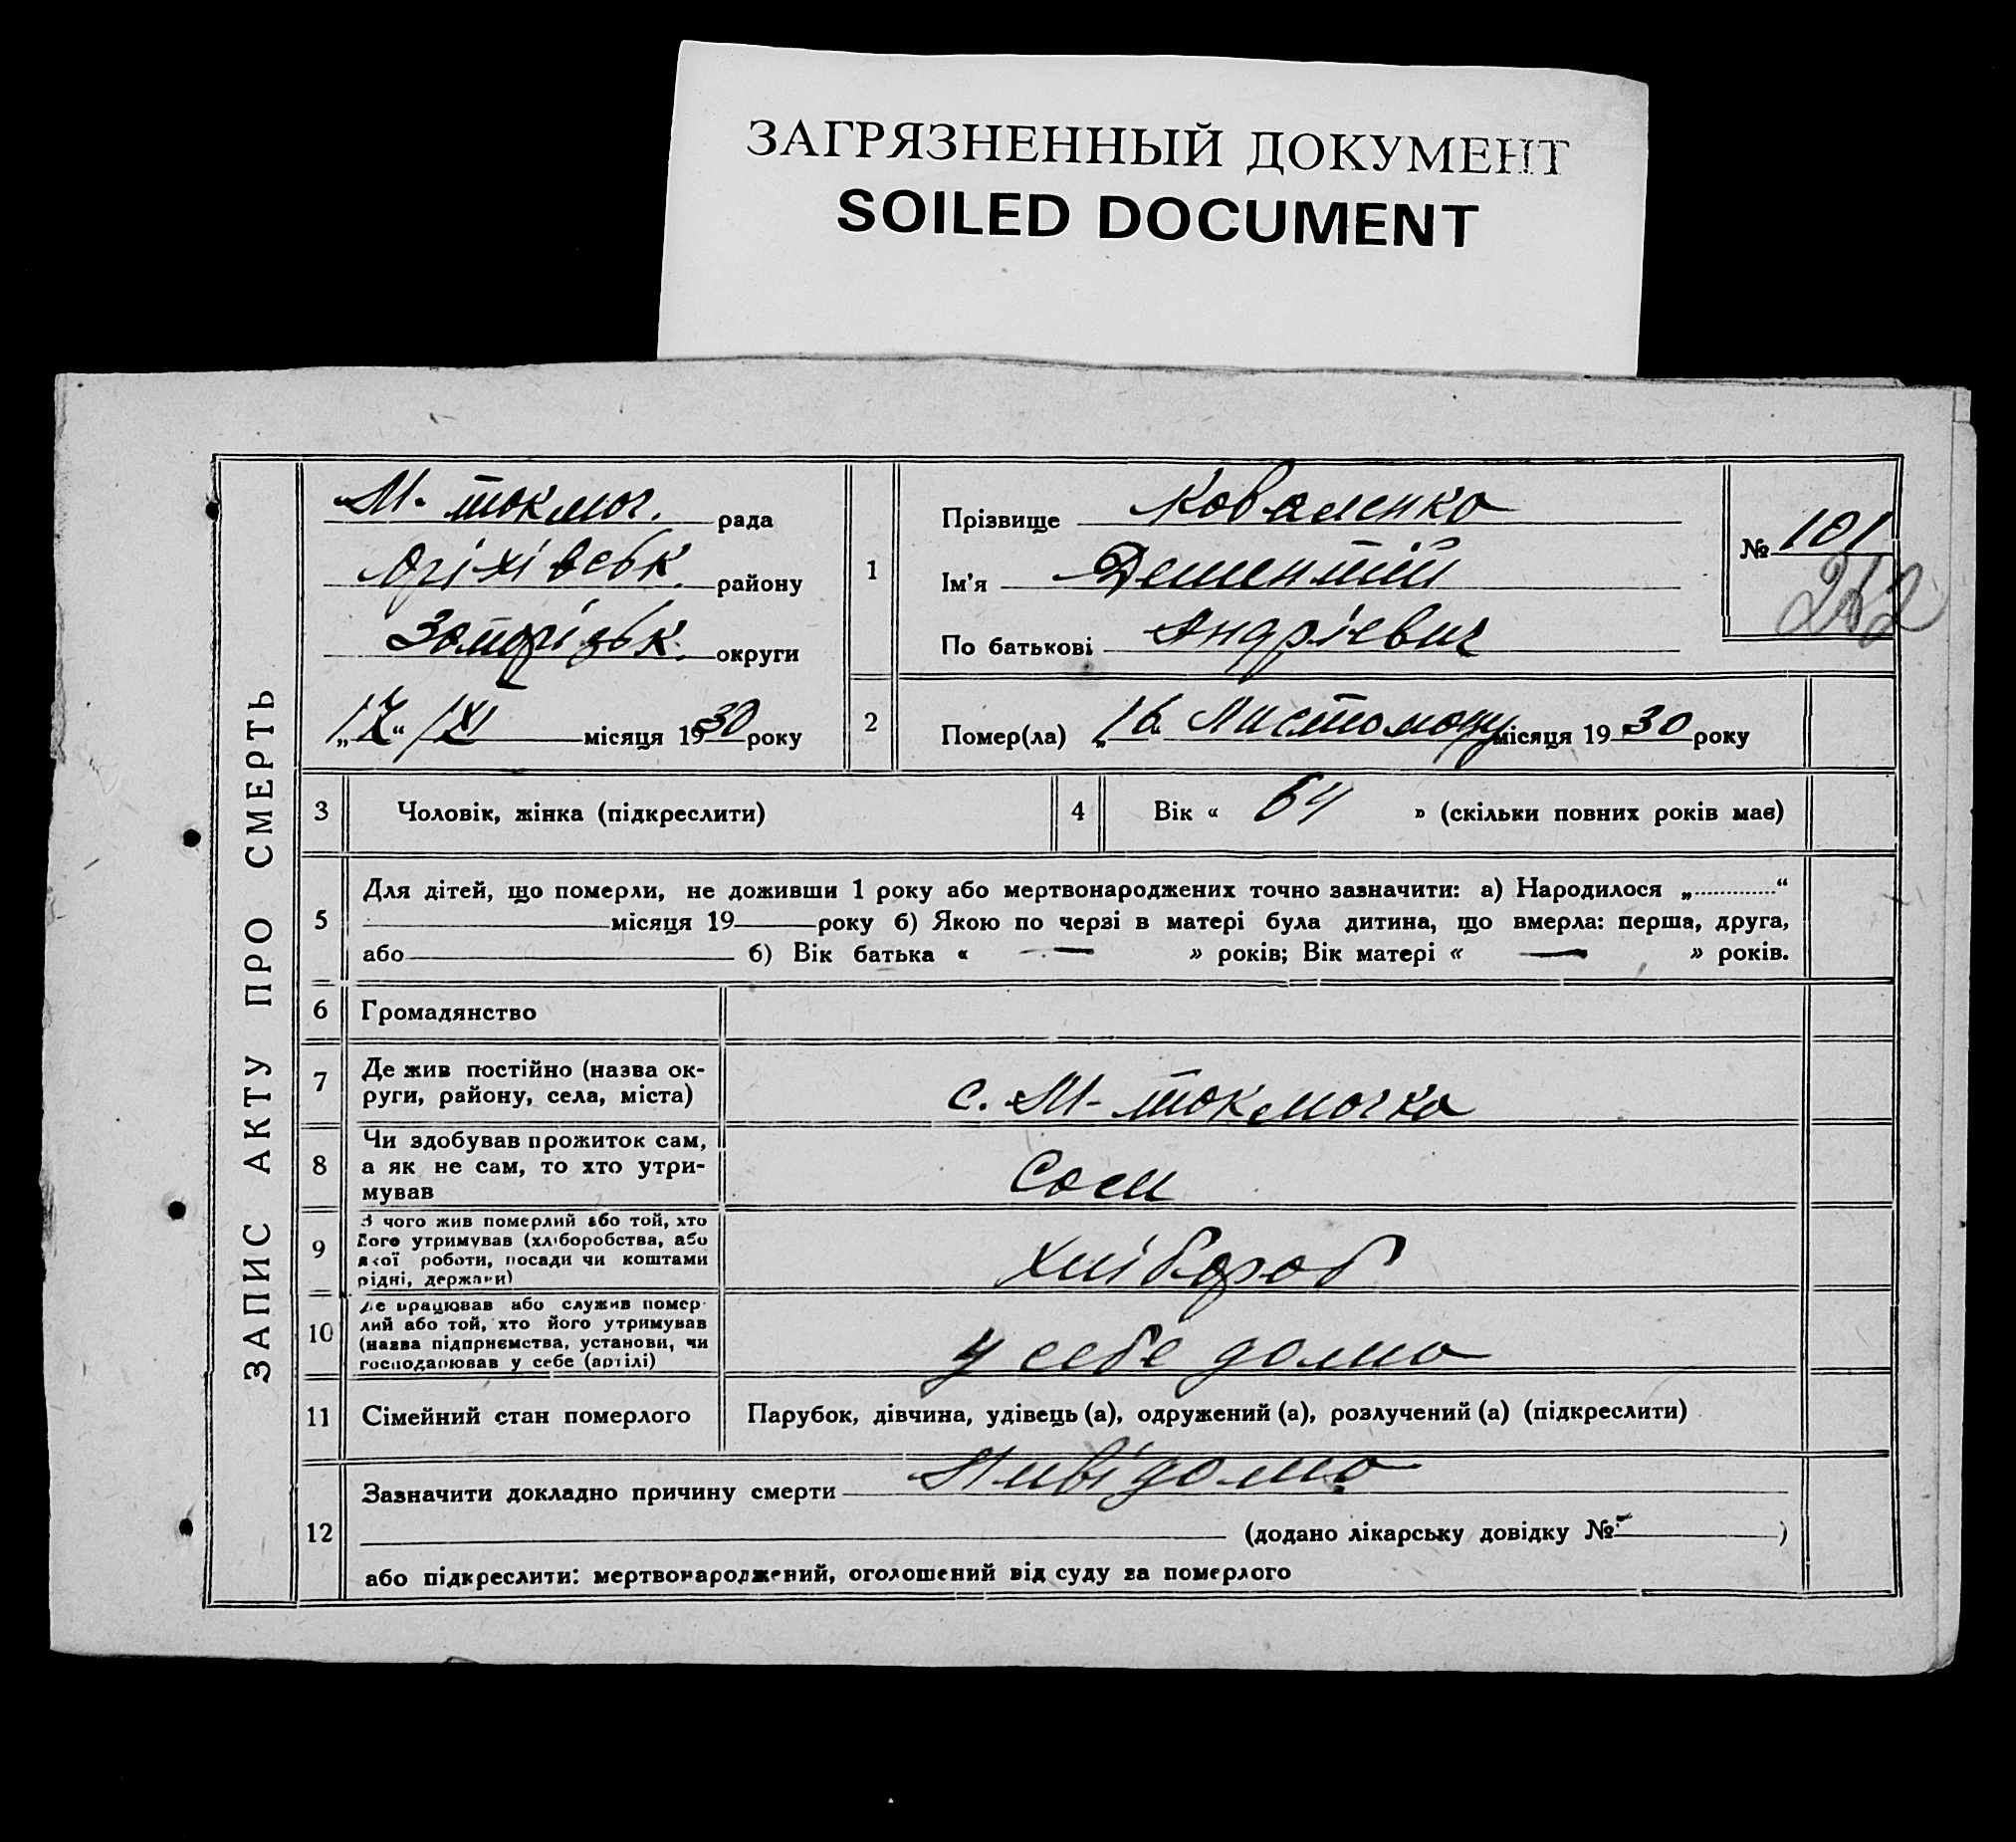 ЗАГРЯЗНЕННЫЙ ДОКУМЕНТ
SOILED DOCUMENT
ЗАПИС АКТУ ПРО СМЕРТЬ
М. токмоч. рада
Оріхівськ. району
Запорізьк. округи
„17“ /XI місяця 1930 року
1
Прізвище Коваленко
Ім'я Дементій
По батькові Андрієвич
№ 101
252
2
Помер(ла) „16 Листопаду місяця 1930 року
3
Чоловік, жінка (підкреслити)
4
Вік « 64 » (скільки повних років має)
5
Для дітей, що померли, не доживши 1 року або мертвонароджених точно зазначити: а) Народилося „ “
місяця 19 року б) Якою по черзі в матері була дитина, що вмерла: перша, друга,
або б) Вік батька « — » років; Вік матері « — » років.
6
Громадянство
7
Де жив постійно (назва ок-
руги, району, села, міста)
с. М-токмочка
8
Чи здобував прожиток сам,
а як не сам, то хто утри-
мував
Сам
9
З чого жив померлий або той, хто
його утримував (хліборобства, або
якої роботи, посади чи коштами
рідні, держави)
Хлібороб
10
Де працював або служив помер-
лий або той, хто його утримував
(назва підприємства, установи, чи
господарював у себе (артілі)
у себе дома
11
Сімейний стан померлого
Парубок, дівчина, удівець (а), одружений (а), розлучений (а) (підкреслити)
12
Зазначити докладно причину смерти Нивідомо
(додано лікарську довідку № - )
або підкреслити: мертвонароджений, оголошений від суду за померлого